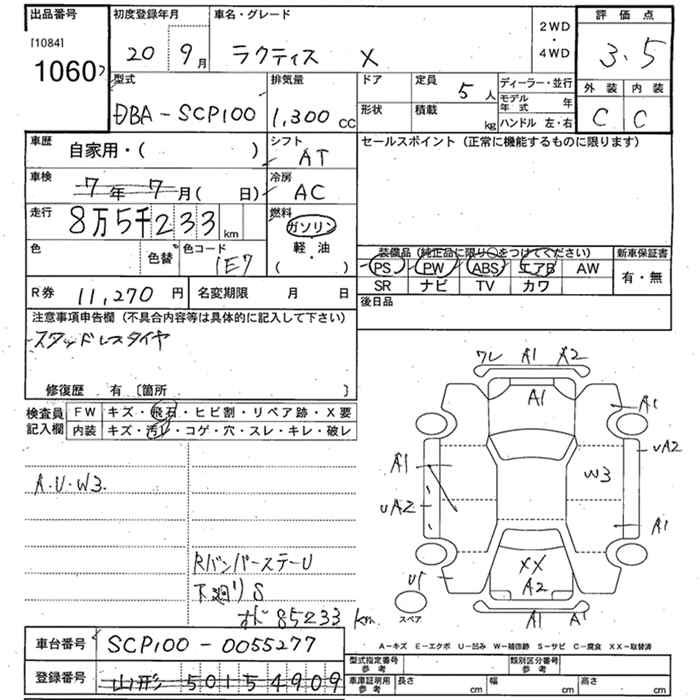 出品番号
[1084]
1060
初度登録年月
20 9月
車名・グレード
ラクティス X
2WD
・
4WD
評価点
3.5
外装 内装
C C
型式
DBA-SCP100
排気量
1,300 cc
ドア
定員 5人
形状
積載 kg
ディーラー・並行
モデル年式 年
ハンドル 左・右
車歴
自家用・( )
シフト
AT
車検
7年7月( 日)
冷房
AC
走行
8万5千233 km
燃料
ガソリン
軽・油
( )
色
色替
色コード
1E7
セールスポイント(正常に機能するものに限ります)
装備品(純正品に限り○をつけてください)
新車保証書
PS PW ABS エアB AW
SR ナビ TV カワ
有・無
後日品
R券 11,270 円
名変期限 月 日
注意事項申告欄(不具合内容等は具体的に記入して下さい)
スタッドレスタイヤ
修復歴 有〔箇所 〕
検査員記入欄
FW キズ・飛石・ヒビ割・リペア跡・X要
内装 キズ・汚レ・コゲ・穴・スレ・キレ・破レ
A.U.W3.
Rバンパーステー U
下廻り S
オド 85233 km
ワレ A1 A2
A1
A1
UA2
A1
W3
UA2
A1
XX
A2
U1
スペア
A1 A1
車台番号 SCP100-0055277
登録番号 山形 501 5 4909
A-キズ E-エクボ U-凹み W-補修跡 S-サビ C-腐食 XX-取替済
型式指定番号 参考
類別区分番号 参考
車庫証明用 参考
長さ cm
幅 cm
高さ cm